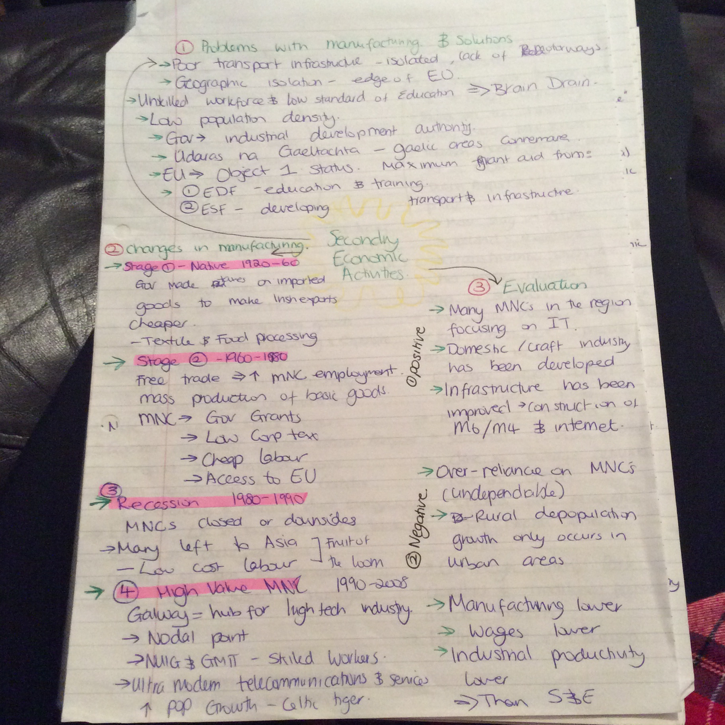 ① Problems with manufacturing & Solutions
→ Poor transport infrastructure - isolated, lack of motorways
→ Geographic isolation - edge of EU
→ Unskilled workforce & low standard of Education ⇒ Brain Drain.
→ Low population density.
→ Gov → industrial development authority.
→ Udaras na Gaeltachta - gaelic areas Connemara
→ EU → Object 1 Status. Maximum grant aid from:
→ ① EDF - education & training
② ESF - developing transport & infrastructure.
Secondry
Economic
Activities
② Changes in manufacturing.
→ Stage ① - Native 1920-60
Gov made on imported
goods to make Irish exports
cheaper.
- Textile & Food processing
→ Stage ② - 1960-1980
Free trade ⇒ ↑ MNC employment.
mass production of basic goods
MNC → Gov Grants
→ Low Corp tax
→ Cheap labour
→ Access to EU
③
→ Recession 1980-1990
MNCs closed or downsides
→ Many left to Asia
- Low cost labour
Fruit of
the loom
→ ④ High Value MNC 1990-2008
Galway = hub for high tech industry
→ Nodal point
→ NUIG & GMIT - Skilled Workers.
→ Ultra modern telecommunications & services
↑ pop Growth - Celtic tiger.
③ Evaluation
① positive
→ Many MNCs in the region
focusing on IT.
→ Domestic / craft industry
has been developed
→ Infrastructure has been
improved → construction of
M6/M4 & internet.
② Negative
→ Over-reliance on MNCs
(undependable)
→ Rural depopulation
growth only occurs in
urban areas
→ Manufacturing lower
→ Wages lower
→ Industrial productivity
lower
⇒ Than S&E